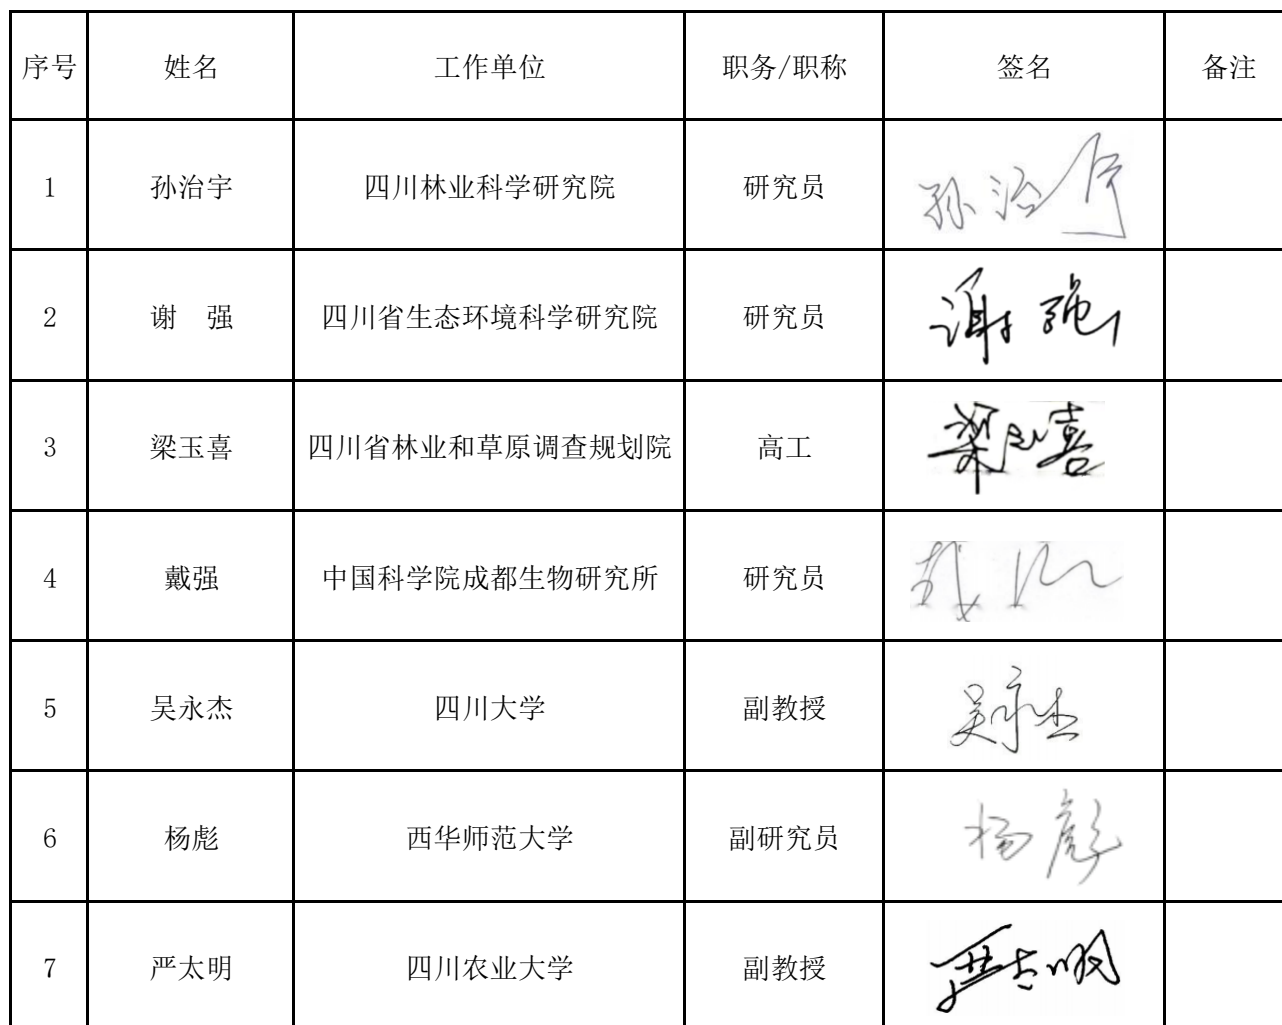 序号 姓名 工作单位 职务/职称 签名 备注
1 孙治宇 四川林业科学研究院 研究员 孙治宇
2 谢 强 四川省生态环境科学研究院 研究员 谢强
3 梁玉喜 四川省林业和草原调查规划院 高工 梁玉喜
4 戴强 中国科学院成都生物研究所 研究员 戴强
5 吴永杰 四川大学 副教授 吴永杰
6 杨彪 西华师范大学 副研究员 杨彪
7 严太明 四川农业大学 副教授 严太明